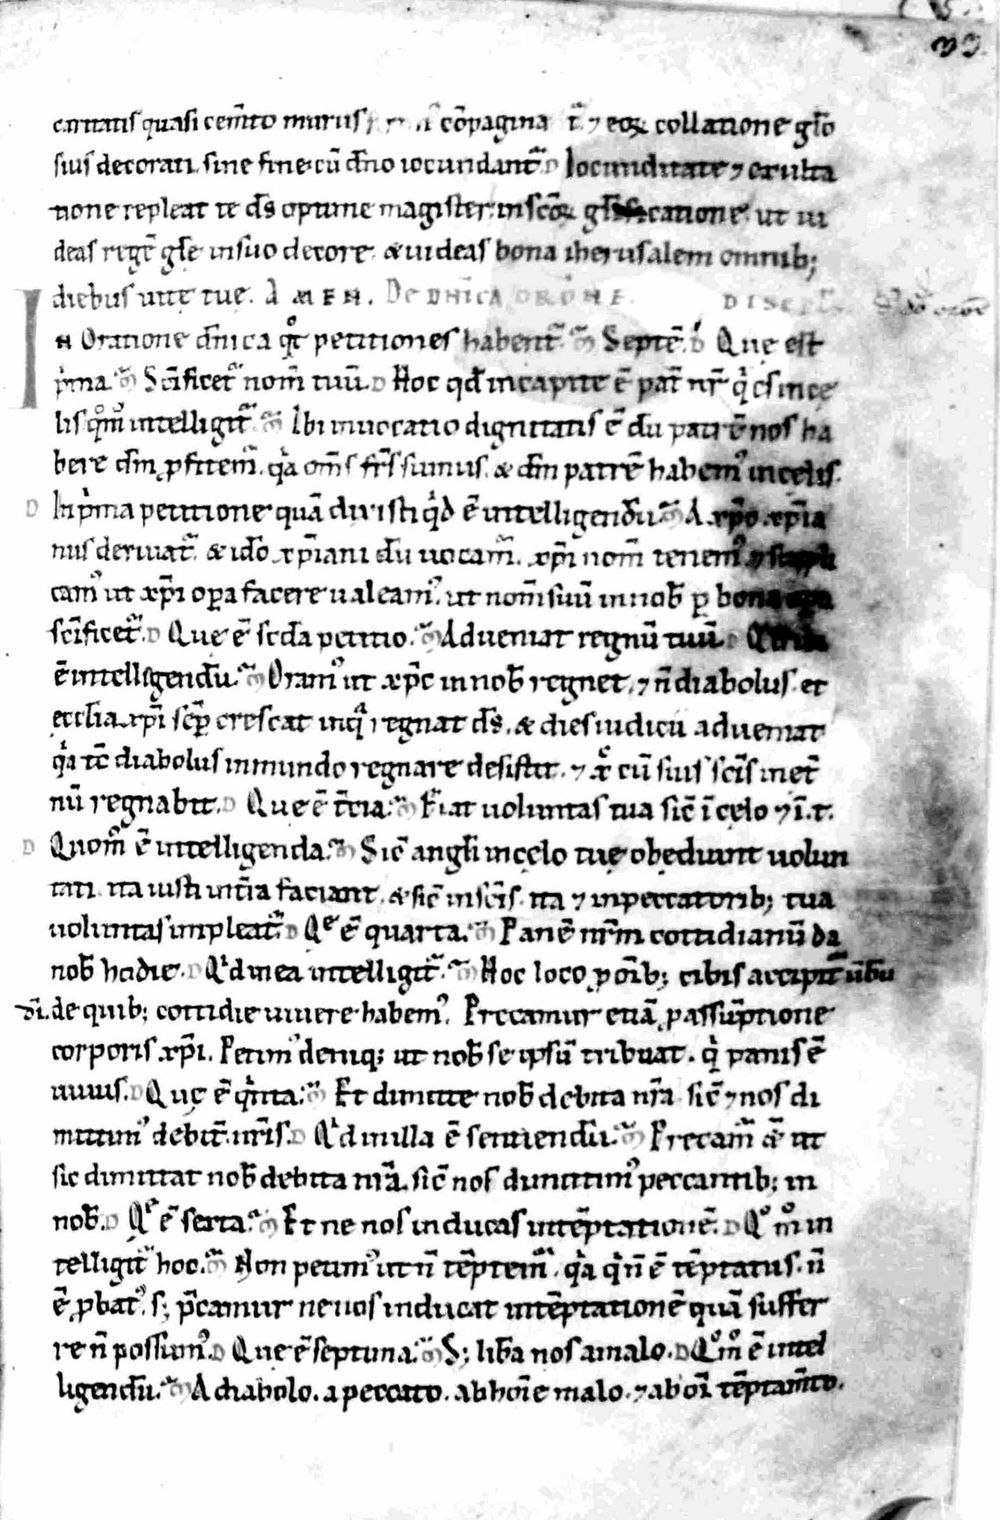 caritatis quasi cem̄to murus cōpagina t᷑ ⁊ eoꝝ collatione gl̄o
sius decorati. sine fine cū dn̄o iocundant᷑. D Iocunditate ⁊ exulta
tione repleat te d̄s optime magister. in sc̄oꝝ gl̄ificatione. ut ui
deas regē gl̄e in suo decore. & uideas bona iherusalem omnib;
diebus uite tue. AMEN. De DNĪCA ORŌNE. DISCIP
IN Oratione dn̄ica qͦt petitiones habent᷑. M Septē. D Que est
pͥma. M Sc̄ificet᷑ nom̄ tuū. D Hoc qd̄ in capite ē pat̄ nr̄ qͥ es in ce
lis qͦm̊ intelligit᷑. M Ibi inuocatio dignitatis ē dū patrē nos ha
bere dm̄ ꝓfitem᷑. qͥa om̄s fr̄s sumus. & dm̄ patrē habem᷒ in celis.
D In pͥma petitione quā dixisti qͥd ē intelligendū. M A xp̄o xp̄ia
nus deriuat᷑. & ido xp̄iani dū uocam᷑. xp̄i nom̄ tenem᷒ ⁊
cam᷒ ut xp̄i oꝑa facere ualeam᷒. ut nom̄ suū in nob̄ ꝑ bona oꝑa
sc̄ificet᷑. D Que ē scd̄a petitio. M Adueniat regnū tuū. D
ē intelligendū. M Oram᷒ ut xp̄c in nob̄ regnet. ⁊ n̄ diabolus. et
eccl̄ia xp̄i sēp crescat in qͣ regnat d̄s. & dies iudicii adueniat
qͥa tc̄ diabolus in mundo regnare desistit. ⁊ x̄ cū suis sc̄is in et̄
nū regnabit. D Que ē t̄cia. M Fiat uoluntas tua sic̄ ī celo ⁊ ī. t.
D Quom̊ ē intelligenda. M Sic̄ angl̄i in celo tue obediunt uolun
tati. ita iusti in t̄ra faciant. & sic̄ in sc̄is. ita ⁊ in peccatorib; tua
uoluntas impleat᷑. D Qͤ ē quarta. M Panē nr̄m cottidianū da
nob̄ hodie. D Qͥd in ea intelligit᷑. M Hoc loco ꝓ om̄ib; cibis accipit᷑ ūbū
d̄i. de quib; cottidie uiuere habem᷒. Precamur etiā ꝓ assūptione
corporis xp̄i. Petim᷒ deniq; ut nob̄ se ipsū tribuat. qͥ panis ē
uiuus. D Que ē qͥnta. M Et dimitte nob̄ debita nr̄a sic̄ ⁊ nos di
mittim᷒ debit̄. nr̄is. D Qͥd in illa ē sentiendū. M Precam᷑ &̄ ut
sic dimittat nob̄ debita nr̄a. sic̄ nos dimittim᷒ peccantib; in
nob̄. D Qͤ ē sexta. M Et ne nos inducas in tēptationē. D Qͦm̊ in
telligit᷑ hoc. M Non petim᷒ ut n̄ tēptem᷑. qͥa qͥ n̄ ē tēptatus. n̄
ē ꝓbat᷒. s; p̄camur ne nos inducat in tēptationē quā suffer
re n̄ possum᷒. D Que ē septima. M S; lib̄a nos a malo. D Qͦm̊ ē intel
ligendū. M A diabolo. a peccato. ab hoīe malo. ⁊ ab oī tēptam̄to.